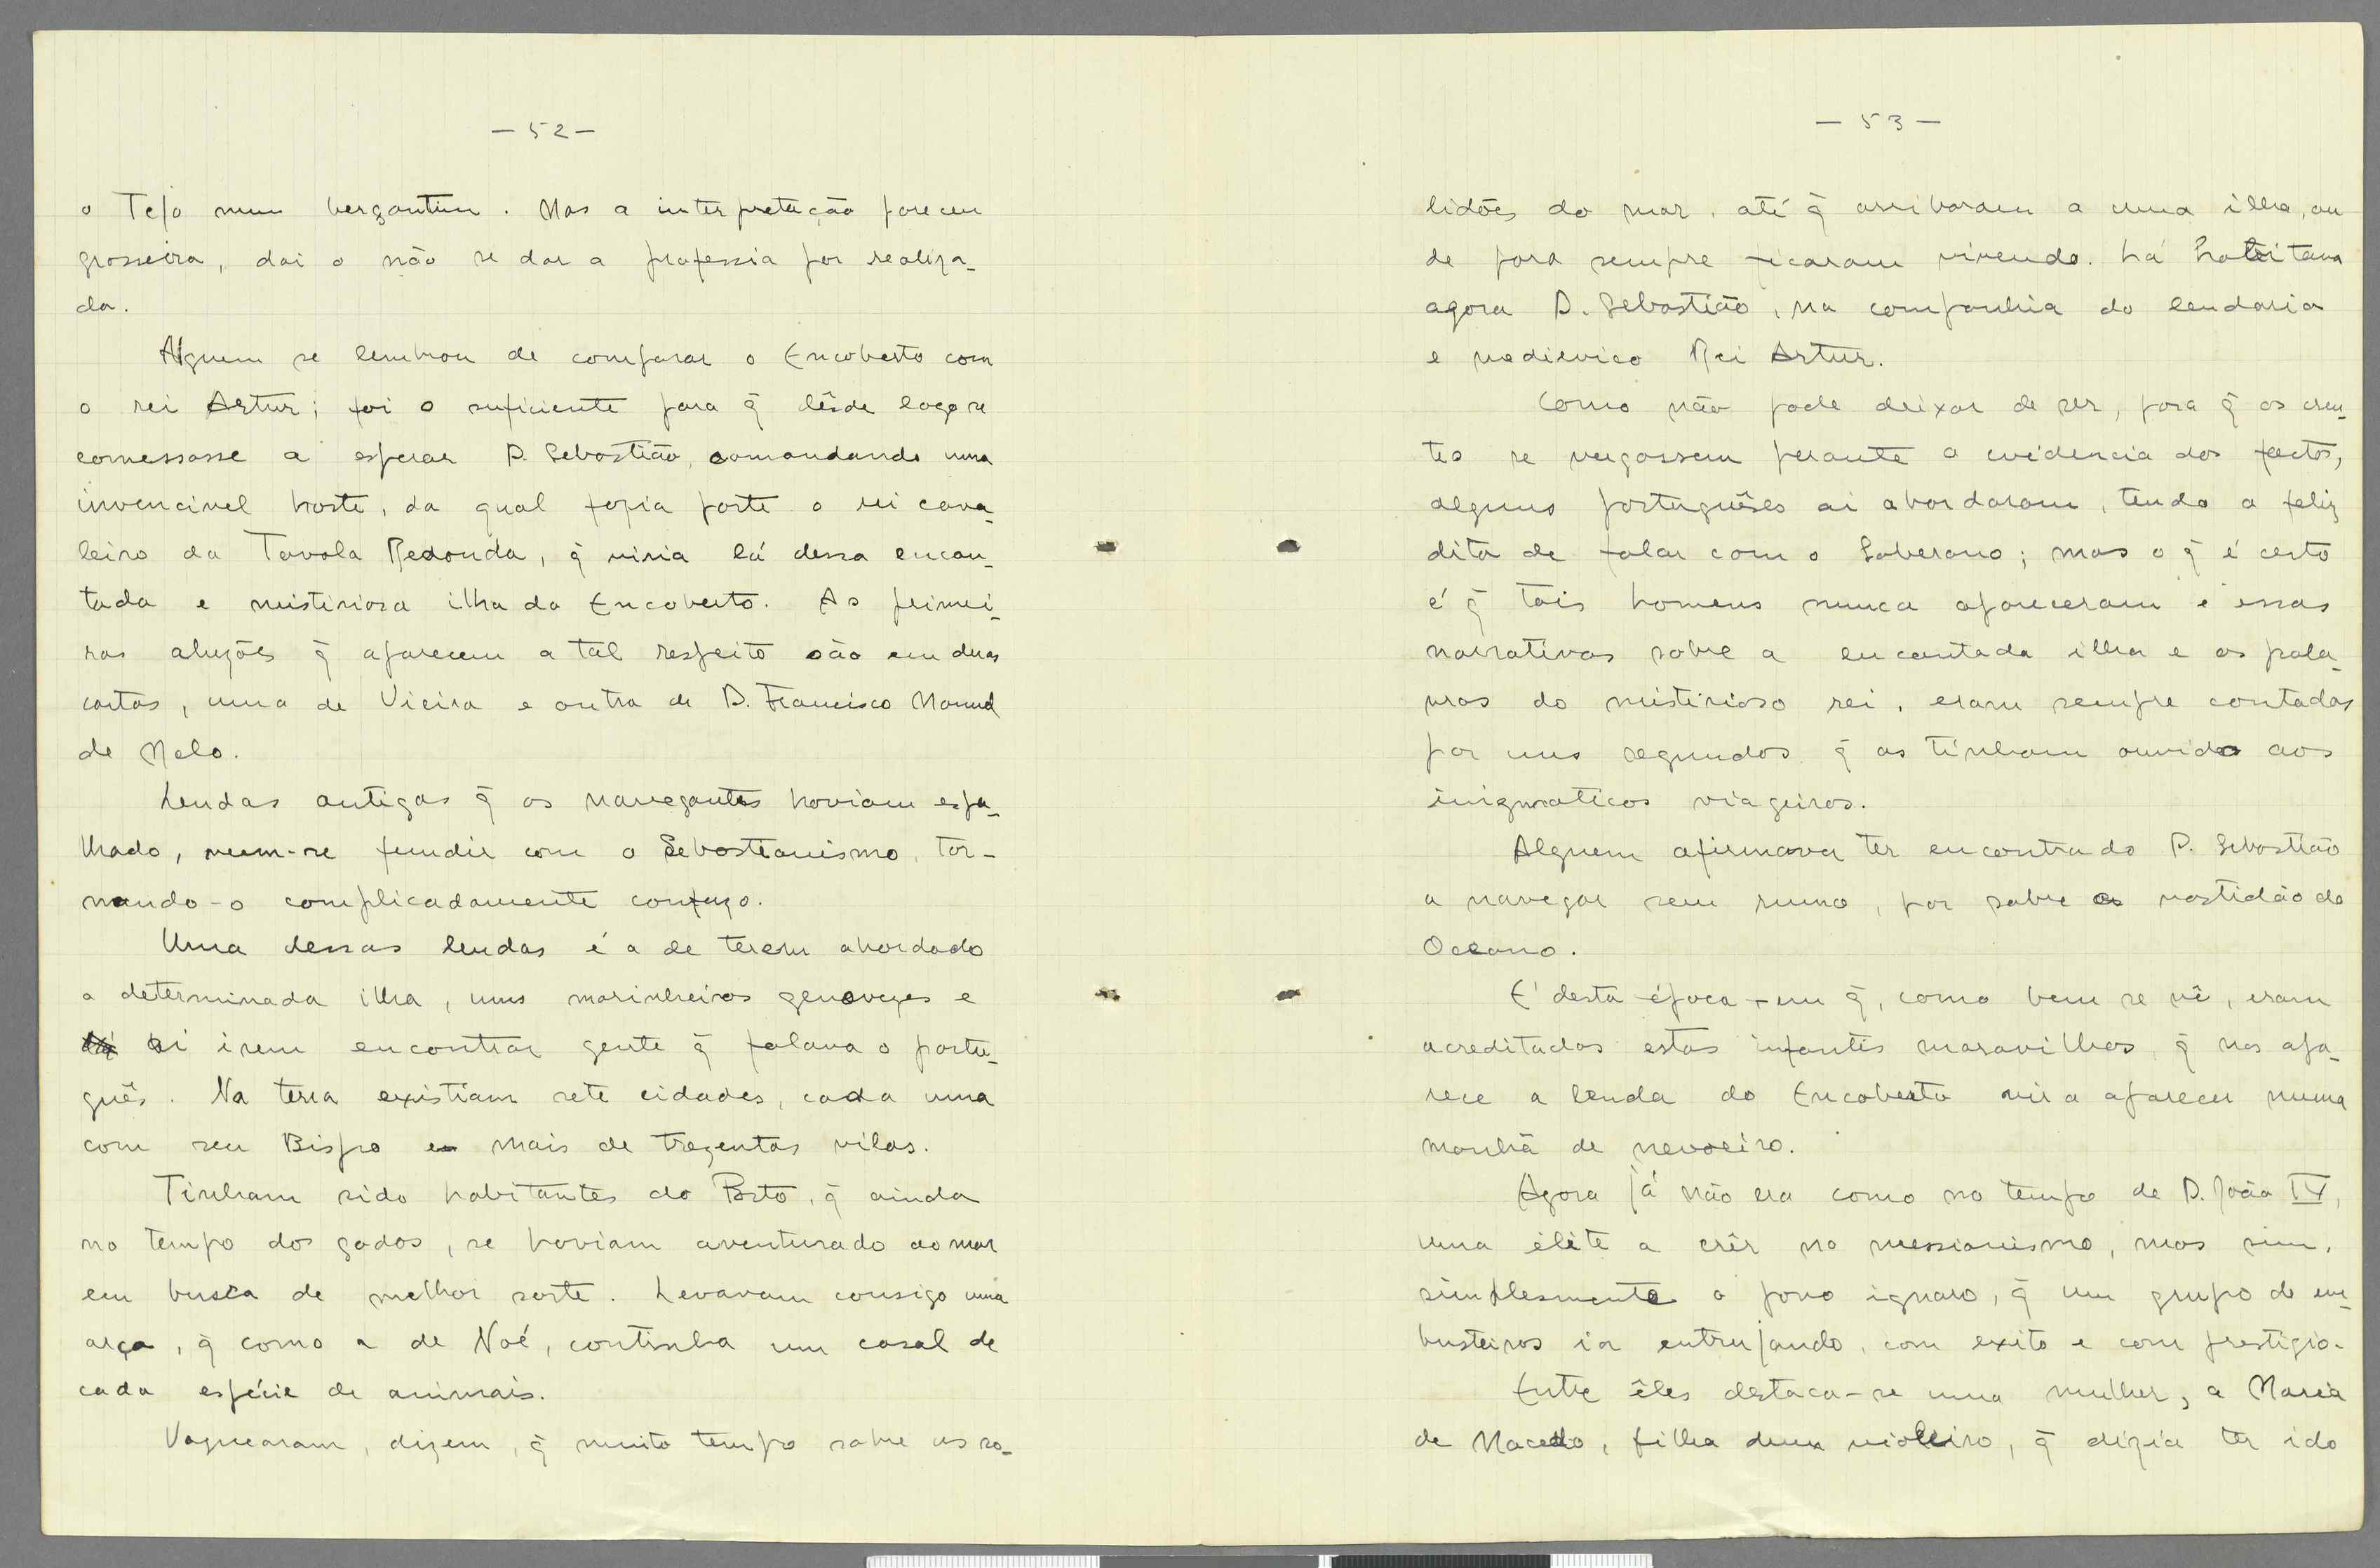 — 52 —
o Tejo num bergantim. Mas a interpretação pareceu
grosseira, dai o não se dar a professia por realiza-
da.
Alguem se lembrou de comparar o Encoberto com
o rei Artur; foi o suficiente para q̃ dêsde logo se
comessasse a esperar D. Sebastião, comandando uma
invencivel hoste, da qual fazia parte o rei cava-
leiro da Tavola Redonda, q̃ viria lá dessa encan-
tada e misteriosa ilha do Encoberto. As primei-
ras aluzões q̃ aparecem a tal respeito são em duas
cartas, uma de Vieira e outra de D. Francisco Manuel
de Melo.
Lendas antigas q̃ os navegantes haviam espa-
lhado, veem-se fundir com o Sebastianismo, tor-
nando-o complicadamente confuzo.
Uma dessas lendas é a de terem abordado
a determinada ilha, uns marinheiros genovezes e
ai irem encontrar gente q̃ falava o portu-
guês. Na terra existiam sete cidades, cada uma
com seu Bispo e mais de trezentas vilas.
Tinham sido habitantes do Porto, q̃ ainda
no tempo dos godos, se haviam aventurado ao mar
em busca de melhor sorte. Levavam consigo uma
arca, q̃ como a de Noé, continha um casal de
cada espécie de animais.
Vaguearam, dizem, q̃ muito tempo sobre as so-
— 53 —
lidões do mar, até q̃ arribaram a uma ilha, on
de para sempre ficaram vivendo. Lá habitava
agora D. Sebastião, na companhia do lendario
e medievico Rei Artur.
Como não pode deixar de ser, para q̃ os cren-
tes se vergassem perante a evidencia dos factos,
alguns portuguêses ai abordaram, tendo a feliz
dita de falar com o Soberano; mas o q̃ é certo
é q̃ tais homens nunca apareceram e essas
narrativas sobre a encantada ilha e as pala-
vras do misterioso rei, eram sempre contadas
por uns segundos q̃ as tinham ouvido aos
inigmaticos viageiros.
Alguem afirmava ter encontrado D. Sebastião
a navegar sem rumo, por sobre a vastidão do
Oceano.
E' desta época em q̃, como bem se vê, eram
acreditadas estas infantis maravilhas, q̃ nos apa-
rece a lenda do Encoberto vir a aparecer numa
manhã de nevoeiro.
Agora já não era como no tempo de D. João IV,
uma élite a crêr no messianismo, mas sim,
simplesmente o povo ignaro, q̃ um grupo de em-
busteiros ia entrujando, com exito e com prestigio.
Entre êles destaca-se uma mulher, a Maria
de Macedo, filha dum violeiro, q̃ dizia ter ido